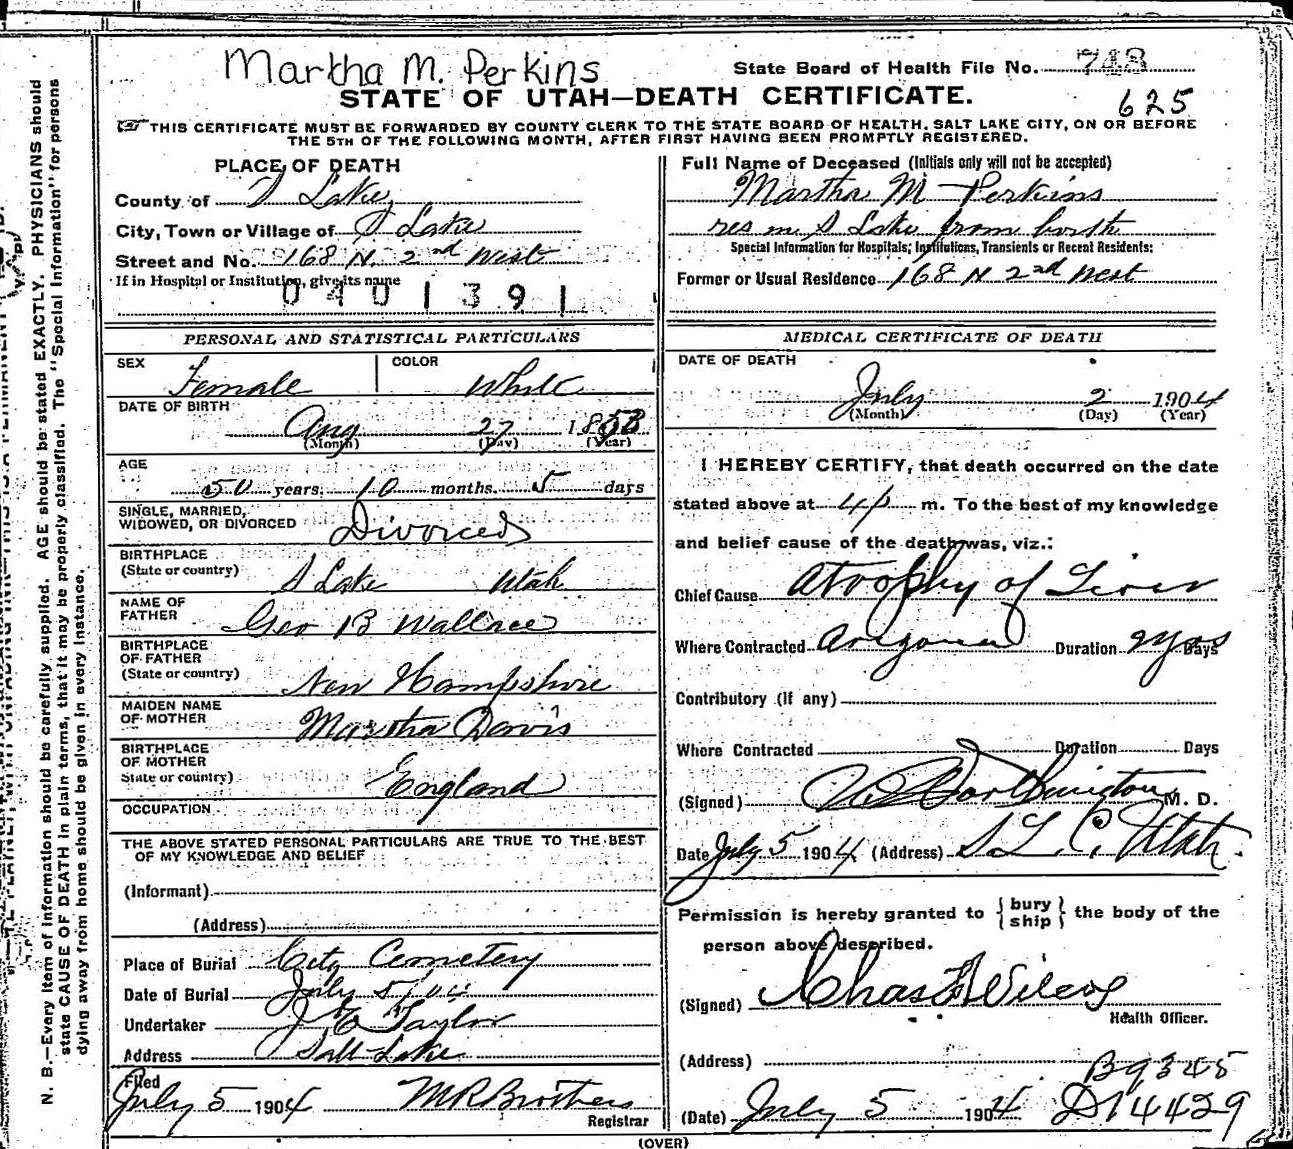 Martha M. Perkins
State Board of Health File No. 743
STATE OF UTAH—DEATH CERTIFICATE.
625
THIS CERTIFICATE MUST BE FORWARDED BY COUNTY CLERK TO THE STATE BOARD OF HEALTH, SALT LAKE CITY, ON OR BEFORE
THE 5TH OF THE FOLLOWING MONTH, AFTER FIRST HAVING BEEN PROMPTLY REGISTERED.
N. B.—Every item of information should be carefully supplied. AGE should be stated EXACTLY. PHYSICIANS should
state CAUSE OF DEATH in plain terms, that it may be properly classified. The "Special Information" for persons
dying away from home should be given in every instance.
PLACE OF DEATH
County of S Lake
City, Town or Village of S Lake
Street and No. 168 N. 2nd West
If in Hospital or Institution, give its name
0401391
PERSONAL AND STATISTICAL PARTICULARS
SEX Female COLOR White
DATE OF BIRTH
Aug 27 18
(Month) (Day) (Year)
AGE
50 years 10 months 5 days
SINGLE, MARRIED,
WIDOWED, OR DIVORCED Divorced
BIRTHPLACE
(State or country) S Lake Utah
NAME OF
FATHER Geo B Wallace
BIRTHPLACE
OF FATHER
(State or country) New Hampshire
MAIDEN NAME
OF MOTHER Martha Davis
BIRTHPLACE
OF MOTHER
State or country) England
OCCUPATION
THE ABOVE STATED PERSONAL PARTICULARS ARE TRUE TO THE BEST
OF MY KNOWLEDGE AND BELIEF
(Informant)
(Address)
Place of Burial City Cemetery
Date of Burial July 5/04
Undertaker Taylor
Address Salt Lake
Filed
July 5 1904 M R Brothers
Registrar
Full Name of Deceased (Initials only will not be accepted)
Martha M Perkins
res in S Lake from birth
Special Information for Hospitals, Institutions, Transients or Recent Residents:
Former or Usual Residence 168 N 2nd West
MEDICAL CERTIFICATE OF DEATH
DATE OF DEATH
July 2 1904
(Month) (Day) (Year)
I HEREBY CERTIFY, that death occurred on the date
stated above at 4 p m. To the best of my knowledge
and belief cause of the death was, viz.:
Chief Cause Atrophy of Liver
Where Contracted Arizona Duration Days
Contributory (If any)
Where Contracted Duration Days
(Signed) Worthington M. D.
Date July 5 1904 (Address) S L C, Utah.
Permission is hereby granted to { bury
ship } the body of the
person above described.
(Signed) Chas F Wilcox
Health Officer.
(Address)
B9345
(Date) July 5 1904 D14429
(OVER)